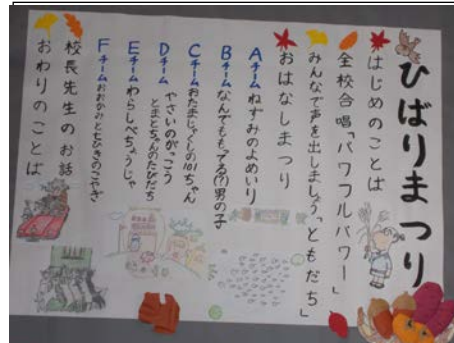 ひばりまつり
はじめのことば
全校合唱「パワフルパワー」
みんなで声を出しましょう「ともだち」
おはなしまつり
Aチーム ねずみのよめいり
Bチーム なんでももってる(?)男の子
Cチーム おたまじゃくしの101ちゃん
Dチーム やさいのがっこう
とまとちゃんのたびだち
Eチーム わらしべちょうじゃ
Fチーム おおかみと七ひきのこやぎ
校長先生のお話
おわりのことば